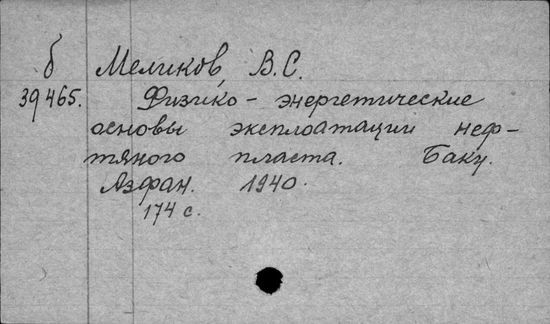 б Меликов, В.С.
39465. Физико-энергетические
основы эксплоатации неф-
тяного пласта. Баку.
Азфан. 1940.
174 с.